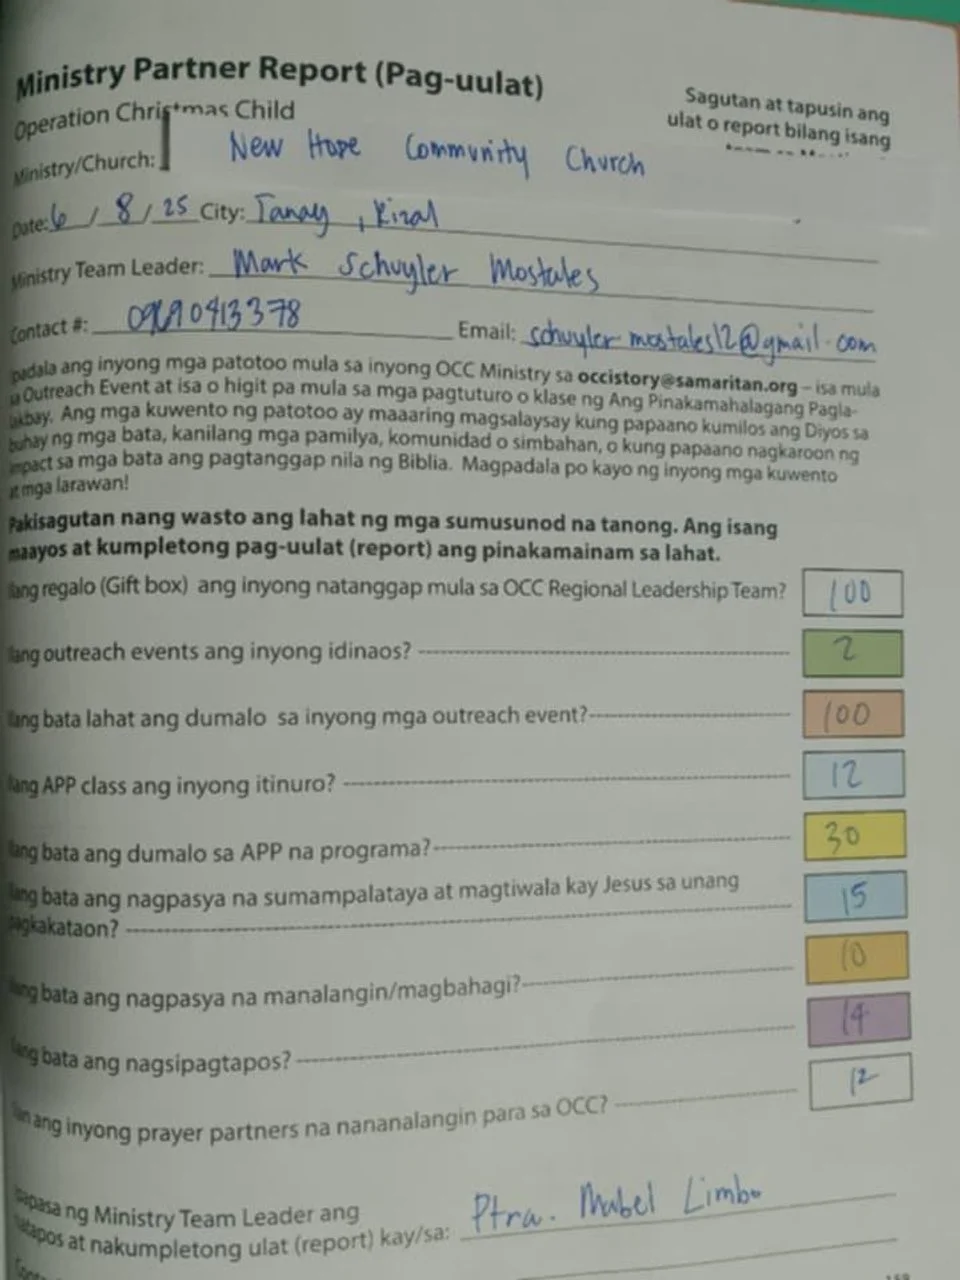 Ministry Partner Report (Pag-uulat)
Operation Christmas Child
Sagutan at tapusin ang
ulat o report bilang isang
Ministry/Church: New Hope Community Church
Date: 6 / 8 / 25 City: Tanay, Rizal
Ministry Team Leader: Mark Schuyler Mostales
Contact #:
Email: schuyler.mostales12@gmail.com
padala ang inyong mga patotoo mula sa inyong OCC Ministry sa occistory@samaritan.org – isa mula
sa Outreach Event at isa o higit pa mula sa mga pagtuturo o klase ng Ang Pinakamahalagang Pagla-
lakbay. Ang mga kuwento ng patotoo ay maaaring magsalaysay kung papaano kumilos ang Diyos sa
buhay ng mga bata, kanilang mga pamilya, komunidad o simbahan, o kung papaano nagkaroon ng
impact sa mga bata ang pagtanggap nila ng Biblia. Magpadala po kayo ng inyong mga kuwento
at mga larawan!
Pakisagutan nang wasto ang lahat ng mga sumusunod na tanong. Ang isang
maayos at kumpletong pag-uulat (report) ang pinakamainam sa lahat.
Ilang regalo (Gift box) ang inyong natanggap mula sa OCC Regional Leadership Team? 100
Ilang outreach events ang inyong idinaos? 2
Ilang bata lahat ang dumalo sa inyong mga outreach event? 100
Ilang APP class ang inyong itinuro? 12
Ilang bata ang dumalo sa APP na programa? 30
Ilang bata ang nagpasya na sumampalataya at magtiwala kay Jesus sa unang
pagkakataon? 15
Ilang bata ang nagpasya na manalangin/magbahagi? 10
Ilang bata ang nagsipagtapos? 14
ang inyong prayer partners na nananalangin para sa OCC? 12
ng Ministry Team Leader ang
at nakumpletong ulat (report) kay/sa: Ptra. Mabel Limbo